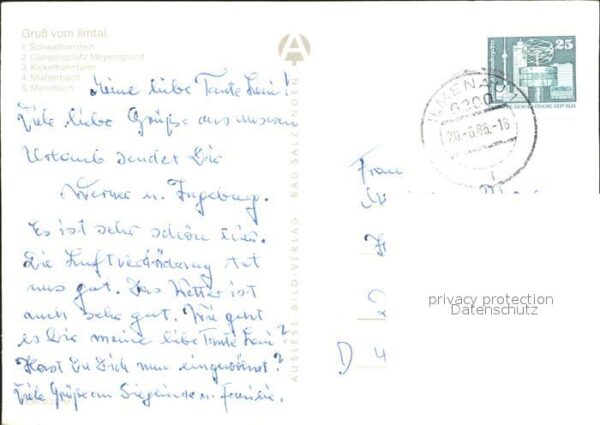 Gruß vom Ilmtal
1 Schwalbenstein
2 Campingplatz Meyersgrund
3 Kickelhahnturm
4 Stützerbach
5 Manebach
Meine liebe Tante Leni!
Viele liebe Grüße aus unseren
Urlaub sendet Die
Werner u. Ingeburg.
Es ist sehr schön hier.
Die Luftveränderung tut
uns gut. Das Wetter ist
auch sehr gut. Wie geht
es Dir meine liebe Tante Leni?
Hast Du Dich nun eingewöhnt?
Viele Grüße an Sieglinde u. Familie.
AUSLESE-BILD-VERLAG BAD SALZUNGEN
25
DEUTSCHE DEMOKRATISCHE REPUBLIK
ILMENAU 1
6300
20-6.86.-18
Frau
D 4
privacy protection
Datenschutz